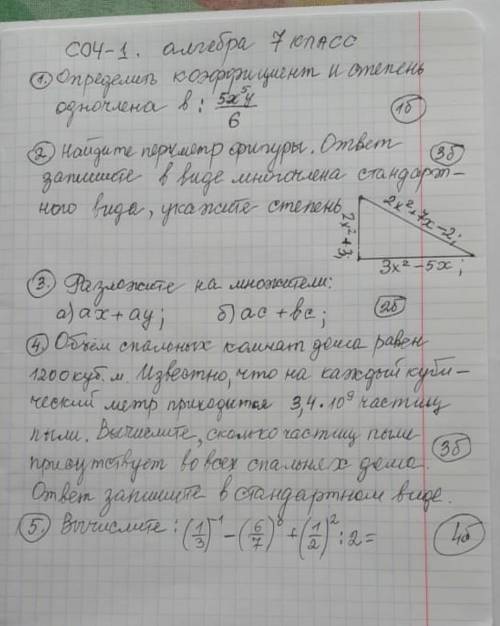 СОЧ-1. алгебра 7 класс
① Определить коэффициент и степень
одночлена в: 5x⁵y/6 1б
② Найдите периметр фигуры. Ответ 3б
запишите в виде многочлена стандарт-
ного вида, укажите степень
2x²+7x-2;
2x²+3;
3x²-5x;
③. Разложите на множители:
а) ax+ay; б) ac+bc; 2б
④ Объём спальных комнат дома равен
1200 куб. м. Известно, что на каждый куби-
ческий метр приходится 3,4·10⁹ частиц
пыли. Вычислите, сколько частиц пыли
присутствует во всех спальнях дома. 3б
Ответ запишите в стандартном виде.
⑤ Вычислите: (1/3)⁻¹-(6/7)⁰+(1/2)²:2= 4б